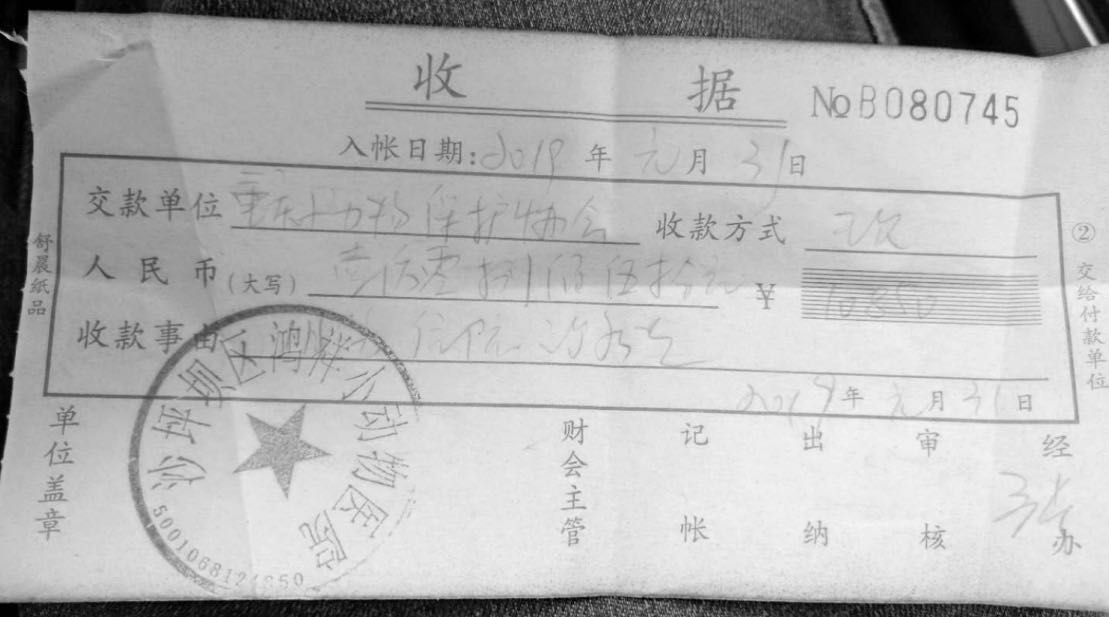 收 据 №B080745
入帐日期:2019年元月31日
交款单位 重庆小动物保护协会 收款方式
人民币(大写) 壹万零捌佰伍拾元 ¥10850
收款事由 住院治疗
2019年元月31日
单位盖章 财会主管 记帐 出纳 审核 经办
舒晨纸品
②交给付款单位
沙坪坝区鸿 小动物医院